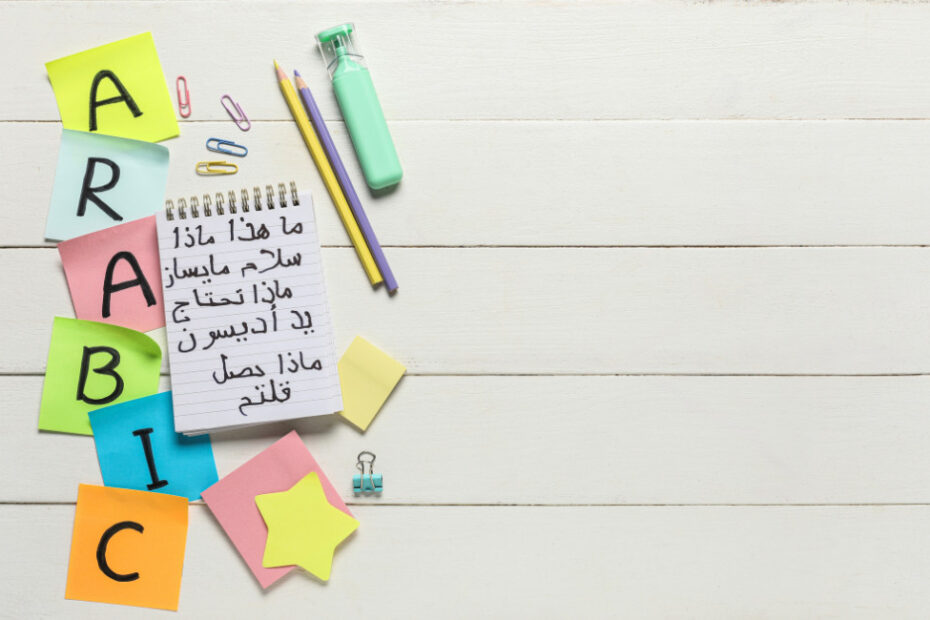 A
R
A
B
I
C
ما هذا ماذا
سلام مايساز
ماذا تحتاج
يد أديسون
ماذا حصل
قلتم